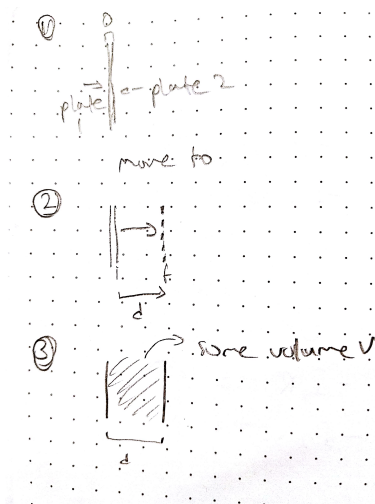 ①
plate 1
plate 2
move to
②
d
③
some volume V
d